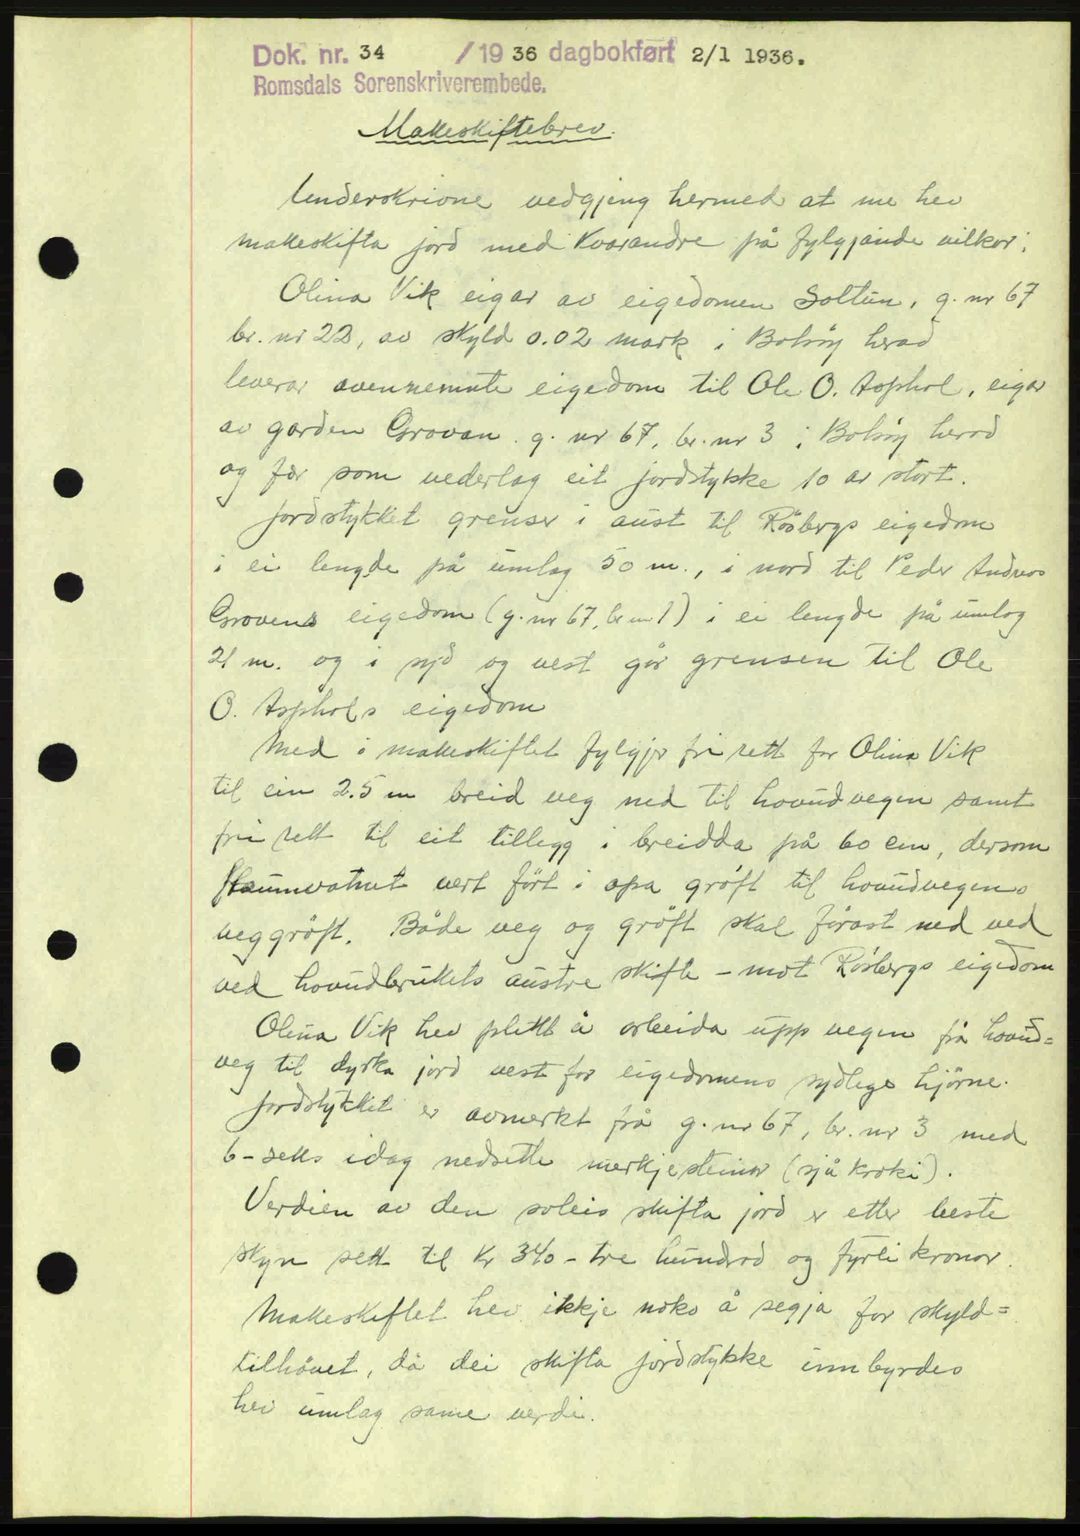 Dok. nr. 34 /1936 dagbokført 2/1 1936.
Romsdals Sorenskriverembede.
Makeskiftebrev.
Underskrivne vedgjeng hermed at me hev
makeskifta jord med kvarandre på fylgjande vilkor:
Olina Vik eigar av eigedomen Soltun, g. nr 67
br. nr 22, av skyld 0.02 mark i Bolsöy herad
leverar ovennemnte eigedom til Ole O. Asphol, eigar
av garden Grovan g. nr 67, br. nr 3 i Bolsöy herad
og fær som vederlag eit jordstykke 10 ar stort.
Jordstykket grenser i aust til Rösbergs eigedom
i ei lengde på umlag 50 m., i nord til Peder Andreas
Grovens eigedom (g. nr 67, br nr 1) i ei lengde på umlag
21 m. og i syd og vest går grensen til Ole
O. Asphols eigedom
Med i makeskiftet fylgjer fri rett for Olina Vik
til ein 2.5 m breid veg ned til hovudvegen samt
fri rett til eit tillegg i breidda på 60 cm, dersom
flaumvatnet vert fört i opa gröft til hovudvegens
veggröft. Både veg og gröft skal förast ned ved
ved hovudbrukets austre skifte - mot Rösbergs eigedom
Olina Vik hev plikt å arbeida upp vegen frå hovud=
veg til dyrka jord vest for eigedomens sydlege hjörne.
Jordstykket er avmerkt frå g. nr 67, br. nr 3 med
6 - seks idag nedsette merkjesteinar (sjå kroki).
Verdien av den soleis skifta jord er etter beste
skyn sett til kr 340 - tre hundrad og fyrti kronor.
Makeskiftet hev ikkje noko å segja for skyld=
tilhövet, då dei skifta jordstykke innbyrdes
hev umlag same verdi.